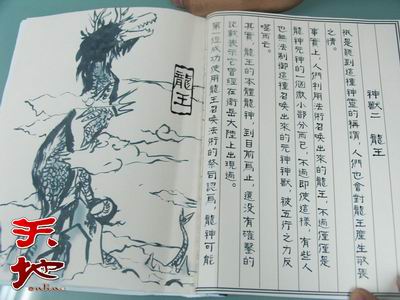 神獸二 龍王
祇是聽到這種神靈的稱謂，人們也會對龍王產生敬畏
之情。
事實上，人們利用法術召喚出來的龍王，不過僅僅是
龍神元神的一個微小部分而已，不過即使這樣，有些人
也無法制御這種召喚出來的元神神獸，被五行之力反
噬而亡。
其實，龍王的本體龍神，到目前為止，還沒有確鑿的
記載表示它曾經在衛岳大陸上出現過。
第一位成功使用龍王召喚法術的祭司認為，龍神可能
龍王
天地
online